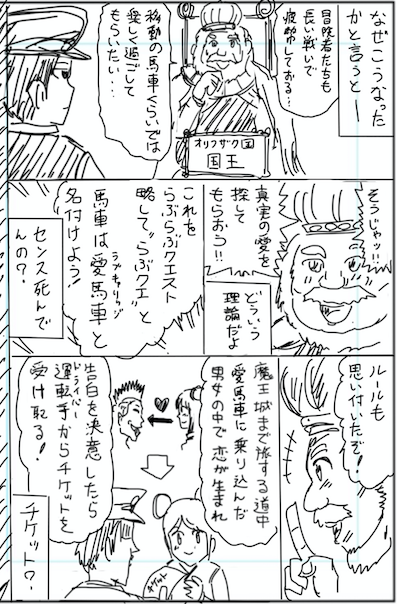 なぜこうなった
かと言うと―
冒険者たちも
長い戦いで
疲弊しておる…
移動の馬車くらいでは
愛して過ごして
もらいたい…
オリフザク国
国王
そうじゃッ!!
真実の愛を
探して
もらおう!!
どういう
理論だよ
これを
らぶらぶクエスト
略して“らぶクエ”と
馬車は愛馬車と
ラブキャリッジ
名付けよう!
センス死んで
んの?
ルールも
思い付いたぞ!
魔王城まで旅する道中
愛馬車に乗り込んだ
男女の中で恋が生まれ
告白を決意したら
運転手からチケットを
ドライバー
受け取る!
チケット
チケット?